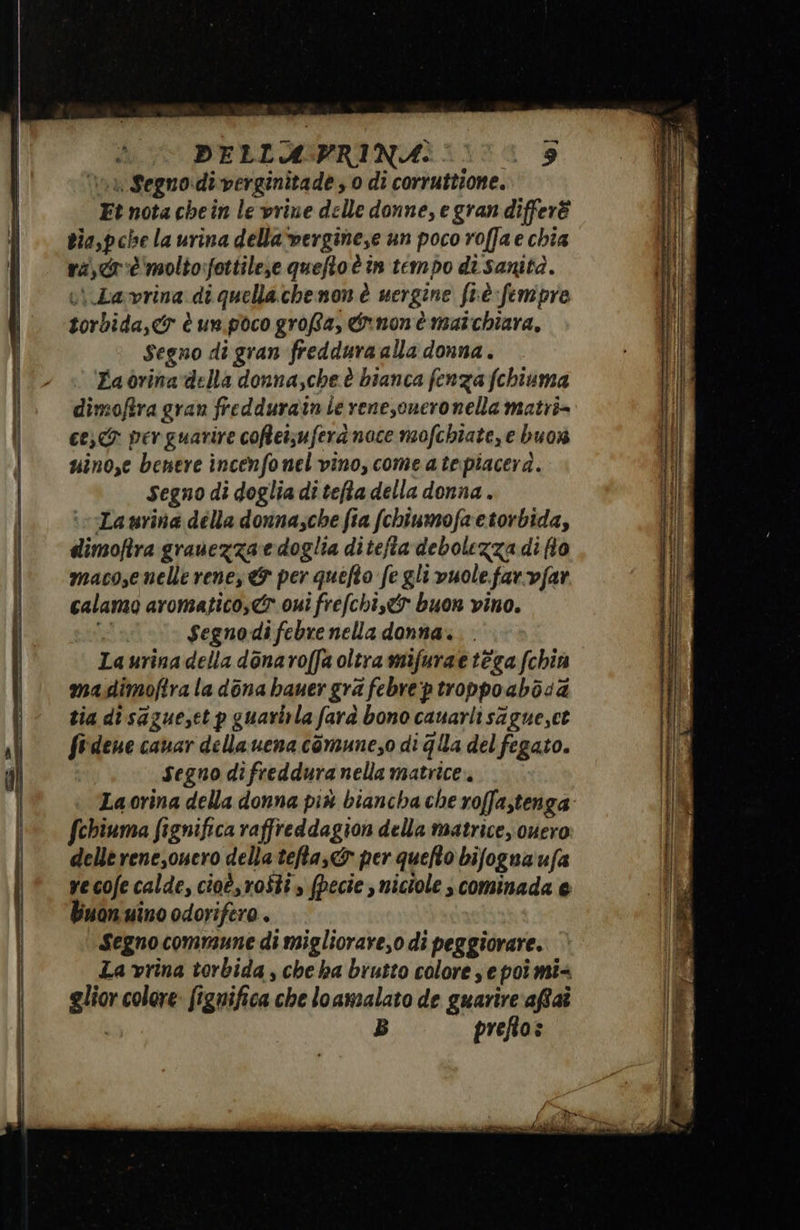 DELLA VRINA. 9
Segno di verginitade, o di corruttione.
Et nota che in le vrine delle donne, e gran differẽ
tia, pche la urina della vergine, e un poco roſſa e chia
ra, & è molto ſottile, e queſto è in tempo di sanità.
La vrina di quella che non è uergine ſi è ſempre
torbida, & è un poco groſſa, & non è mai chiara.
Segno di gran freddura alla donna.
La orina della donna, che è bianca ſenza ſchiuma
dimoſtra gran freddura in le rene, ouero nella matri-
ce, & per guarire coſtei, uſerà noce moſchiate, e buon
uino, e benere incenſo nel vino, come a te piacerà.
Segno di doglia di teſta della donna.
La urina della donna, che ſia ſchiumoſa e torbida,
dimoſtra grauezza e doglia di teſta debolezza di ſto
maco, e nelle rene, & per queſto ſe gli vuole far vſar
calamo aromatico, & oui freſchi, & buon vino.
Segno di febre nella donna.
La urina della dōna roſſa oltra miſura e tẽga ſchiu
ma dimoſtra la dōna hauer grā febre p troppo abōdā
tia di sāgue, et p guarirla farà bono cauarli sāgue, et
ſi deue cauar della uena cōmune, o di q̃lla del fegato.
Segno di freddura nella matrice.
La orina della donna più biancha che roſſa, tenga
ſchiuma ſignifica raffreddagion della matrice, ouero
delle rene, ouero della teſta, & per queſto biſogna uſa
re coſe calde, cioè, roſti, ſpecie, niciole, cominada e
buon uino odorifero.
Segno commune di migliorare, o di peggiorare.
La vrina torbida, che ha brutto colore, e poi mi-
glior colore ſignifica che lo amalato de guarire aſſai
B preſto: